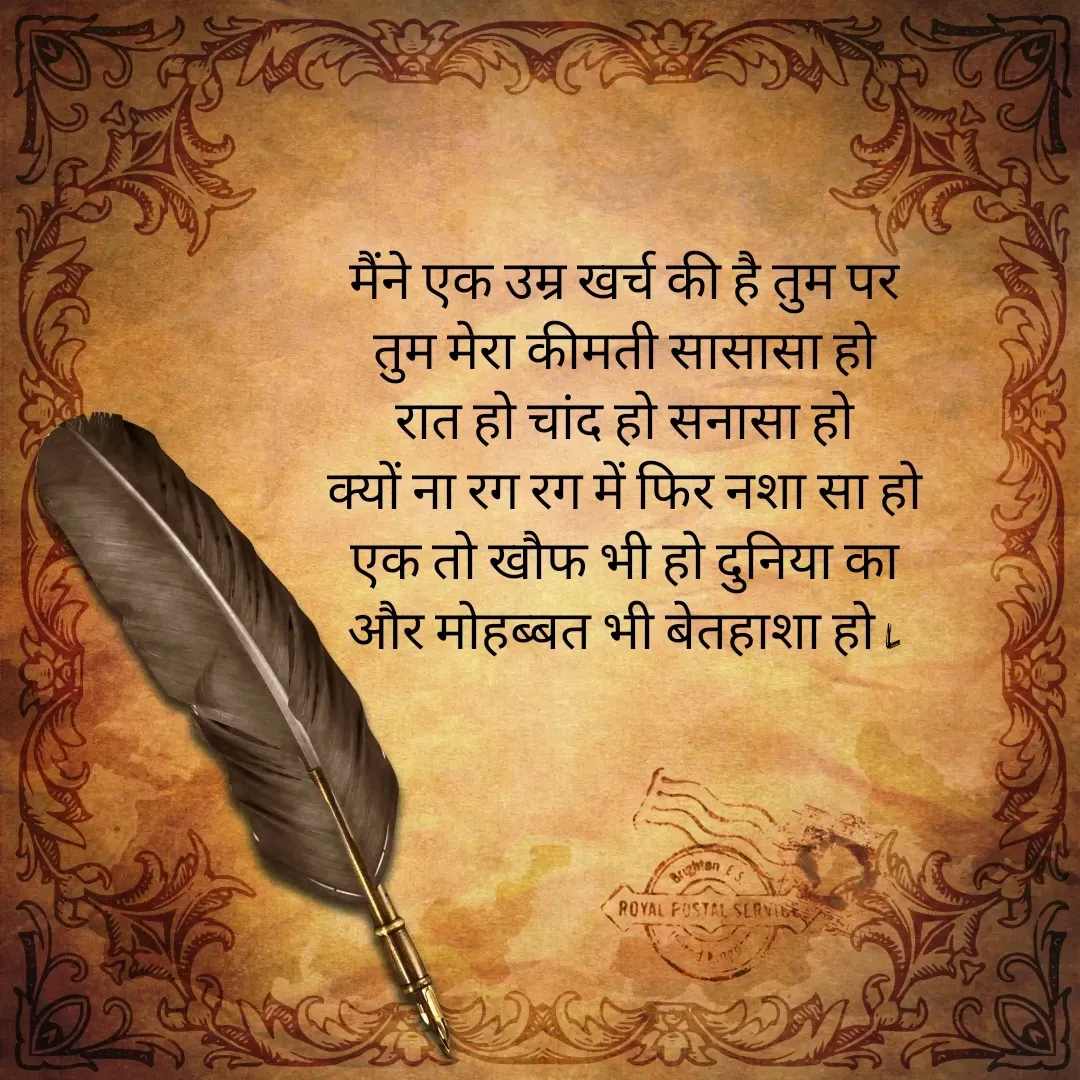 मैंने एक उम्र खर्च की है तुम पर
तुम मेरा कीमती सासासा हो
रात हो चांद हो सनासा हो
क्यों ना रग रग में फिर नशा सा हो
एक तो खौफ भी हो दुनिया का
और मोहब्बत भी बेतहाशा हो
Brighton E.S.
ROYAL POSTAL SERVICE